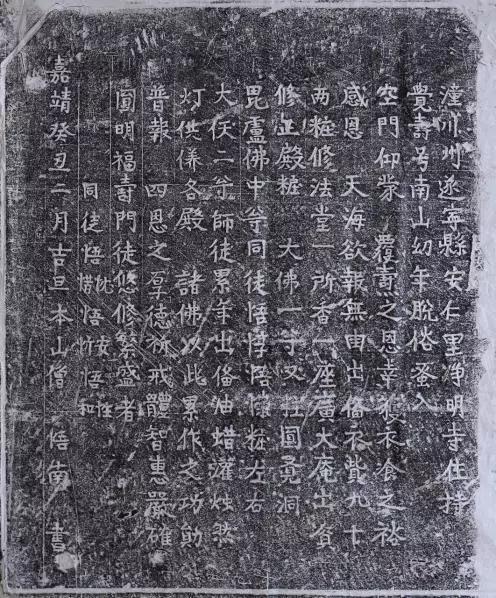 潼川州遂寧縣安仁里净明寺住持
覺壽号南山幼年脫俗蚤入
空門仰蒙 覆燾之恩幸衣食之裕
感恩 天海欲報無由出俻衣貲九十
两粧修法堂一所香一座廣大庵出資
修正殿粧 大佛一寸又粧圓覺洞
毘盧佛中等同徒悟惇悟 粧左右
大仸二等師徒累年出俻油蜡灌烛
灯供儀各殿 諸佛以此累作之功勛
普報 四恩之厚德祈戒體智惠嚴確
圓明福壽門徒悠修繁盛者
同徒悟忱 安
悟忻悟 和
嘉靖癸丑二月吉旦本山僧 悟南 書